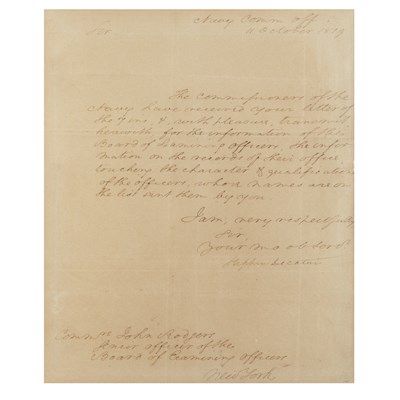 Navy Comm off
11 October 1819
Sir.
The commissioners of the
Navy have received your letter of
the 7 inst, &, with pleasure, transmit
herewith for the information of the
Board of Examining officers, the infor
mation on the records of their office
touching the character & qualifications
of the officers, whose names are on
the list sent them by you
I am, very respectfully
Sir.
Your mo ob Servt
Stephen Decatur
Commre John Rodgers
Senior officer of the
Board of Examining officers
New York